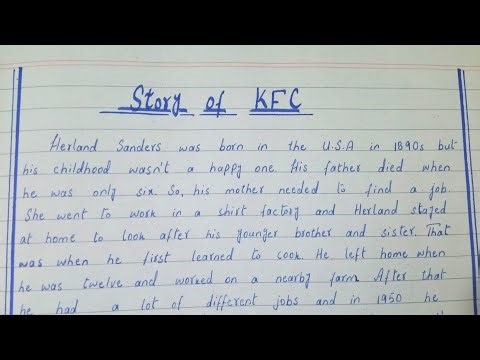 Story of KFC
Herland Sanders was born in the U.S.A in 1890s but
his childhood wasn't a happy one. His father died when
he was only six. So, his mother needed to find a job.
She went to work in a shirt factory and Herland stayed
at home to look after his younger brother and sister. That
was when he first learned to cook. He left home when
he was twelve and worked on a nearby farm. After that
he had a lot of different jobs and in 1950 he